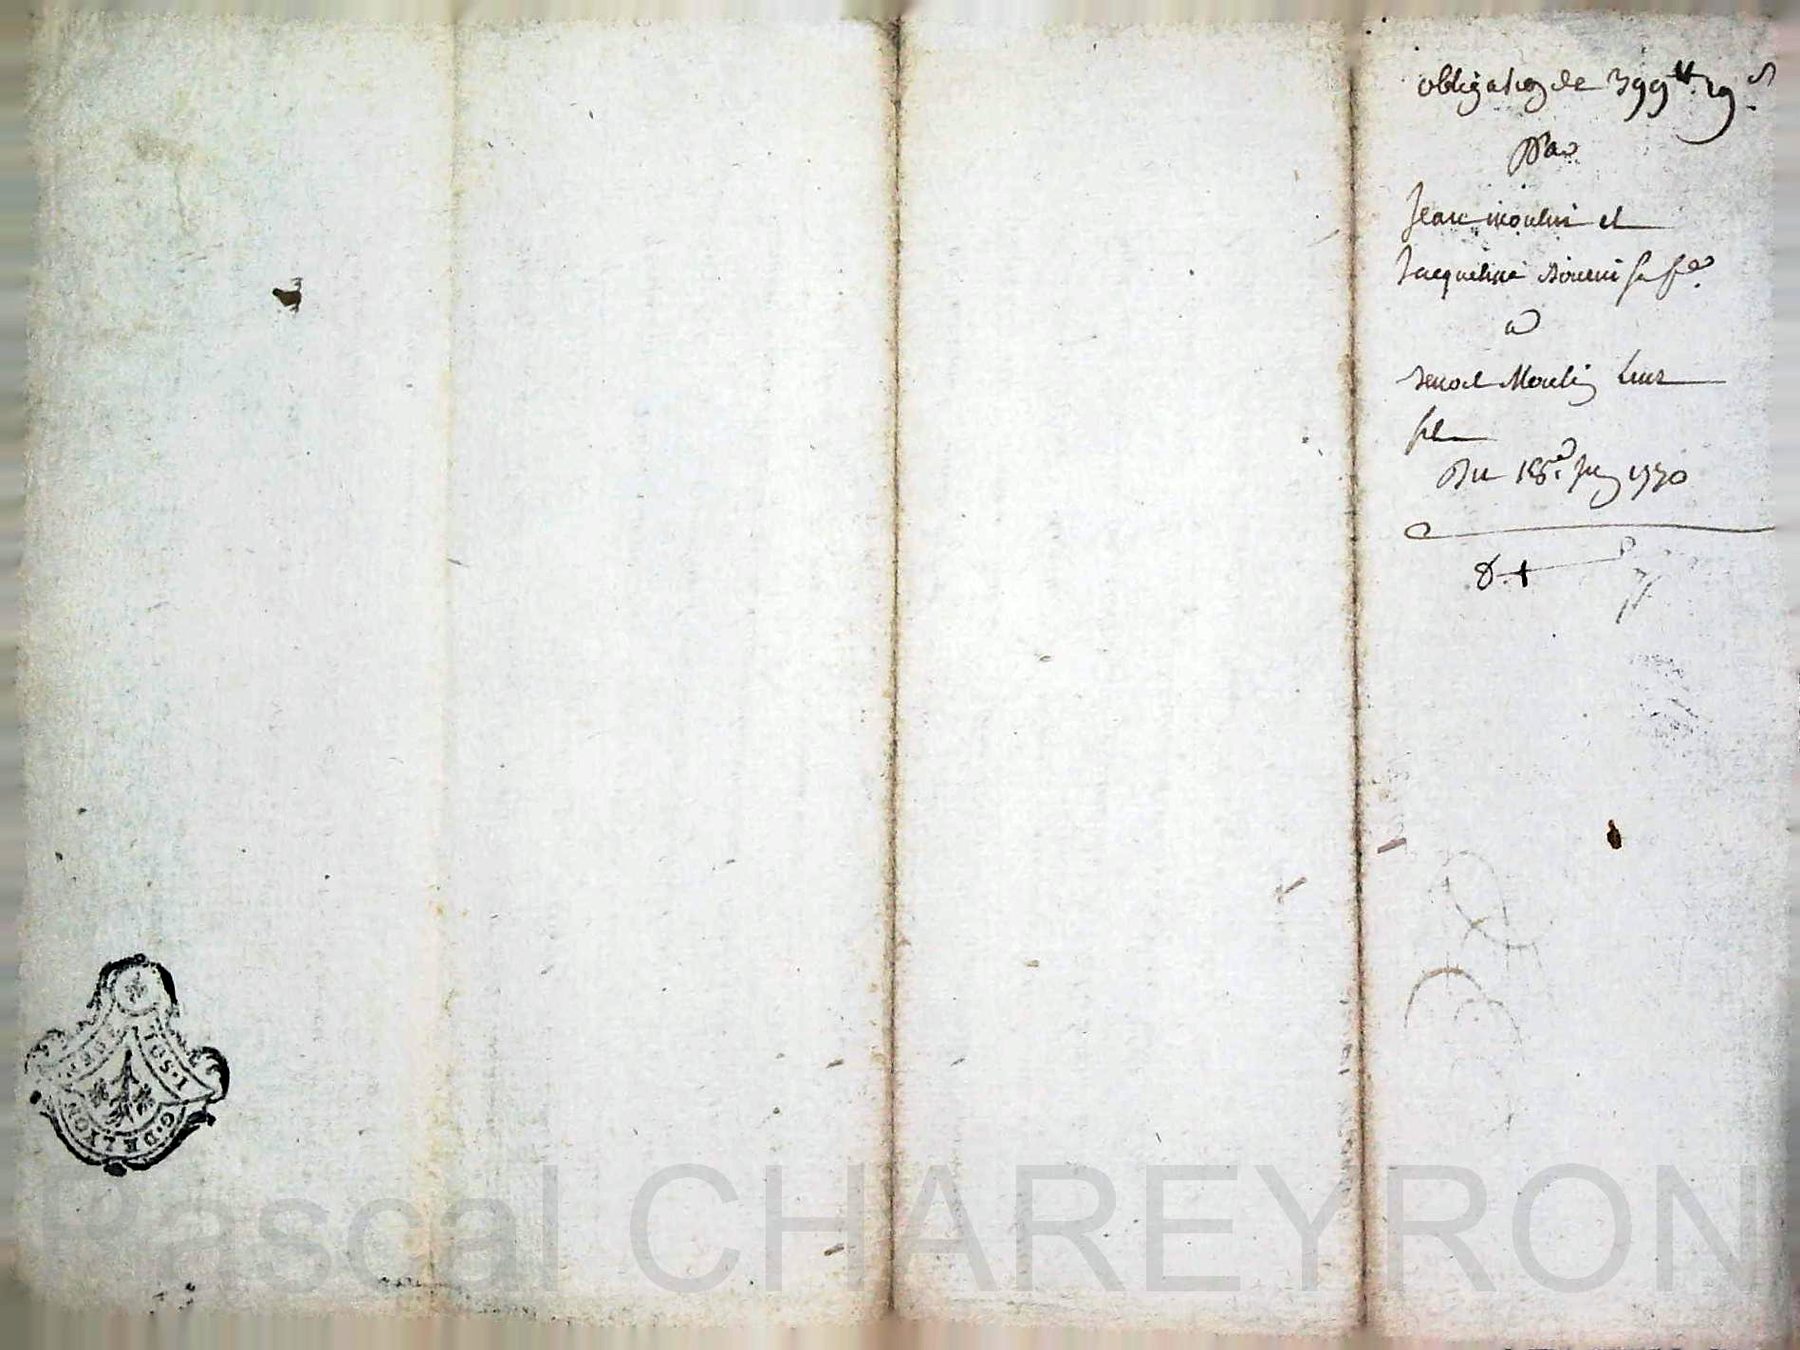 obligation de 399 ₶ 19 s
par
Jean moulin et
Jacqueline sa fe
a
Benoit Moulin Leur
fils
Du 18e Juin 1770
8. +
G. DE LYON
Pascal CHAREYRON